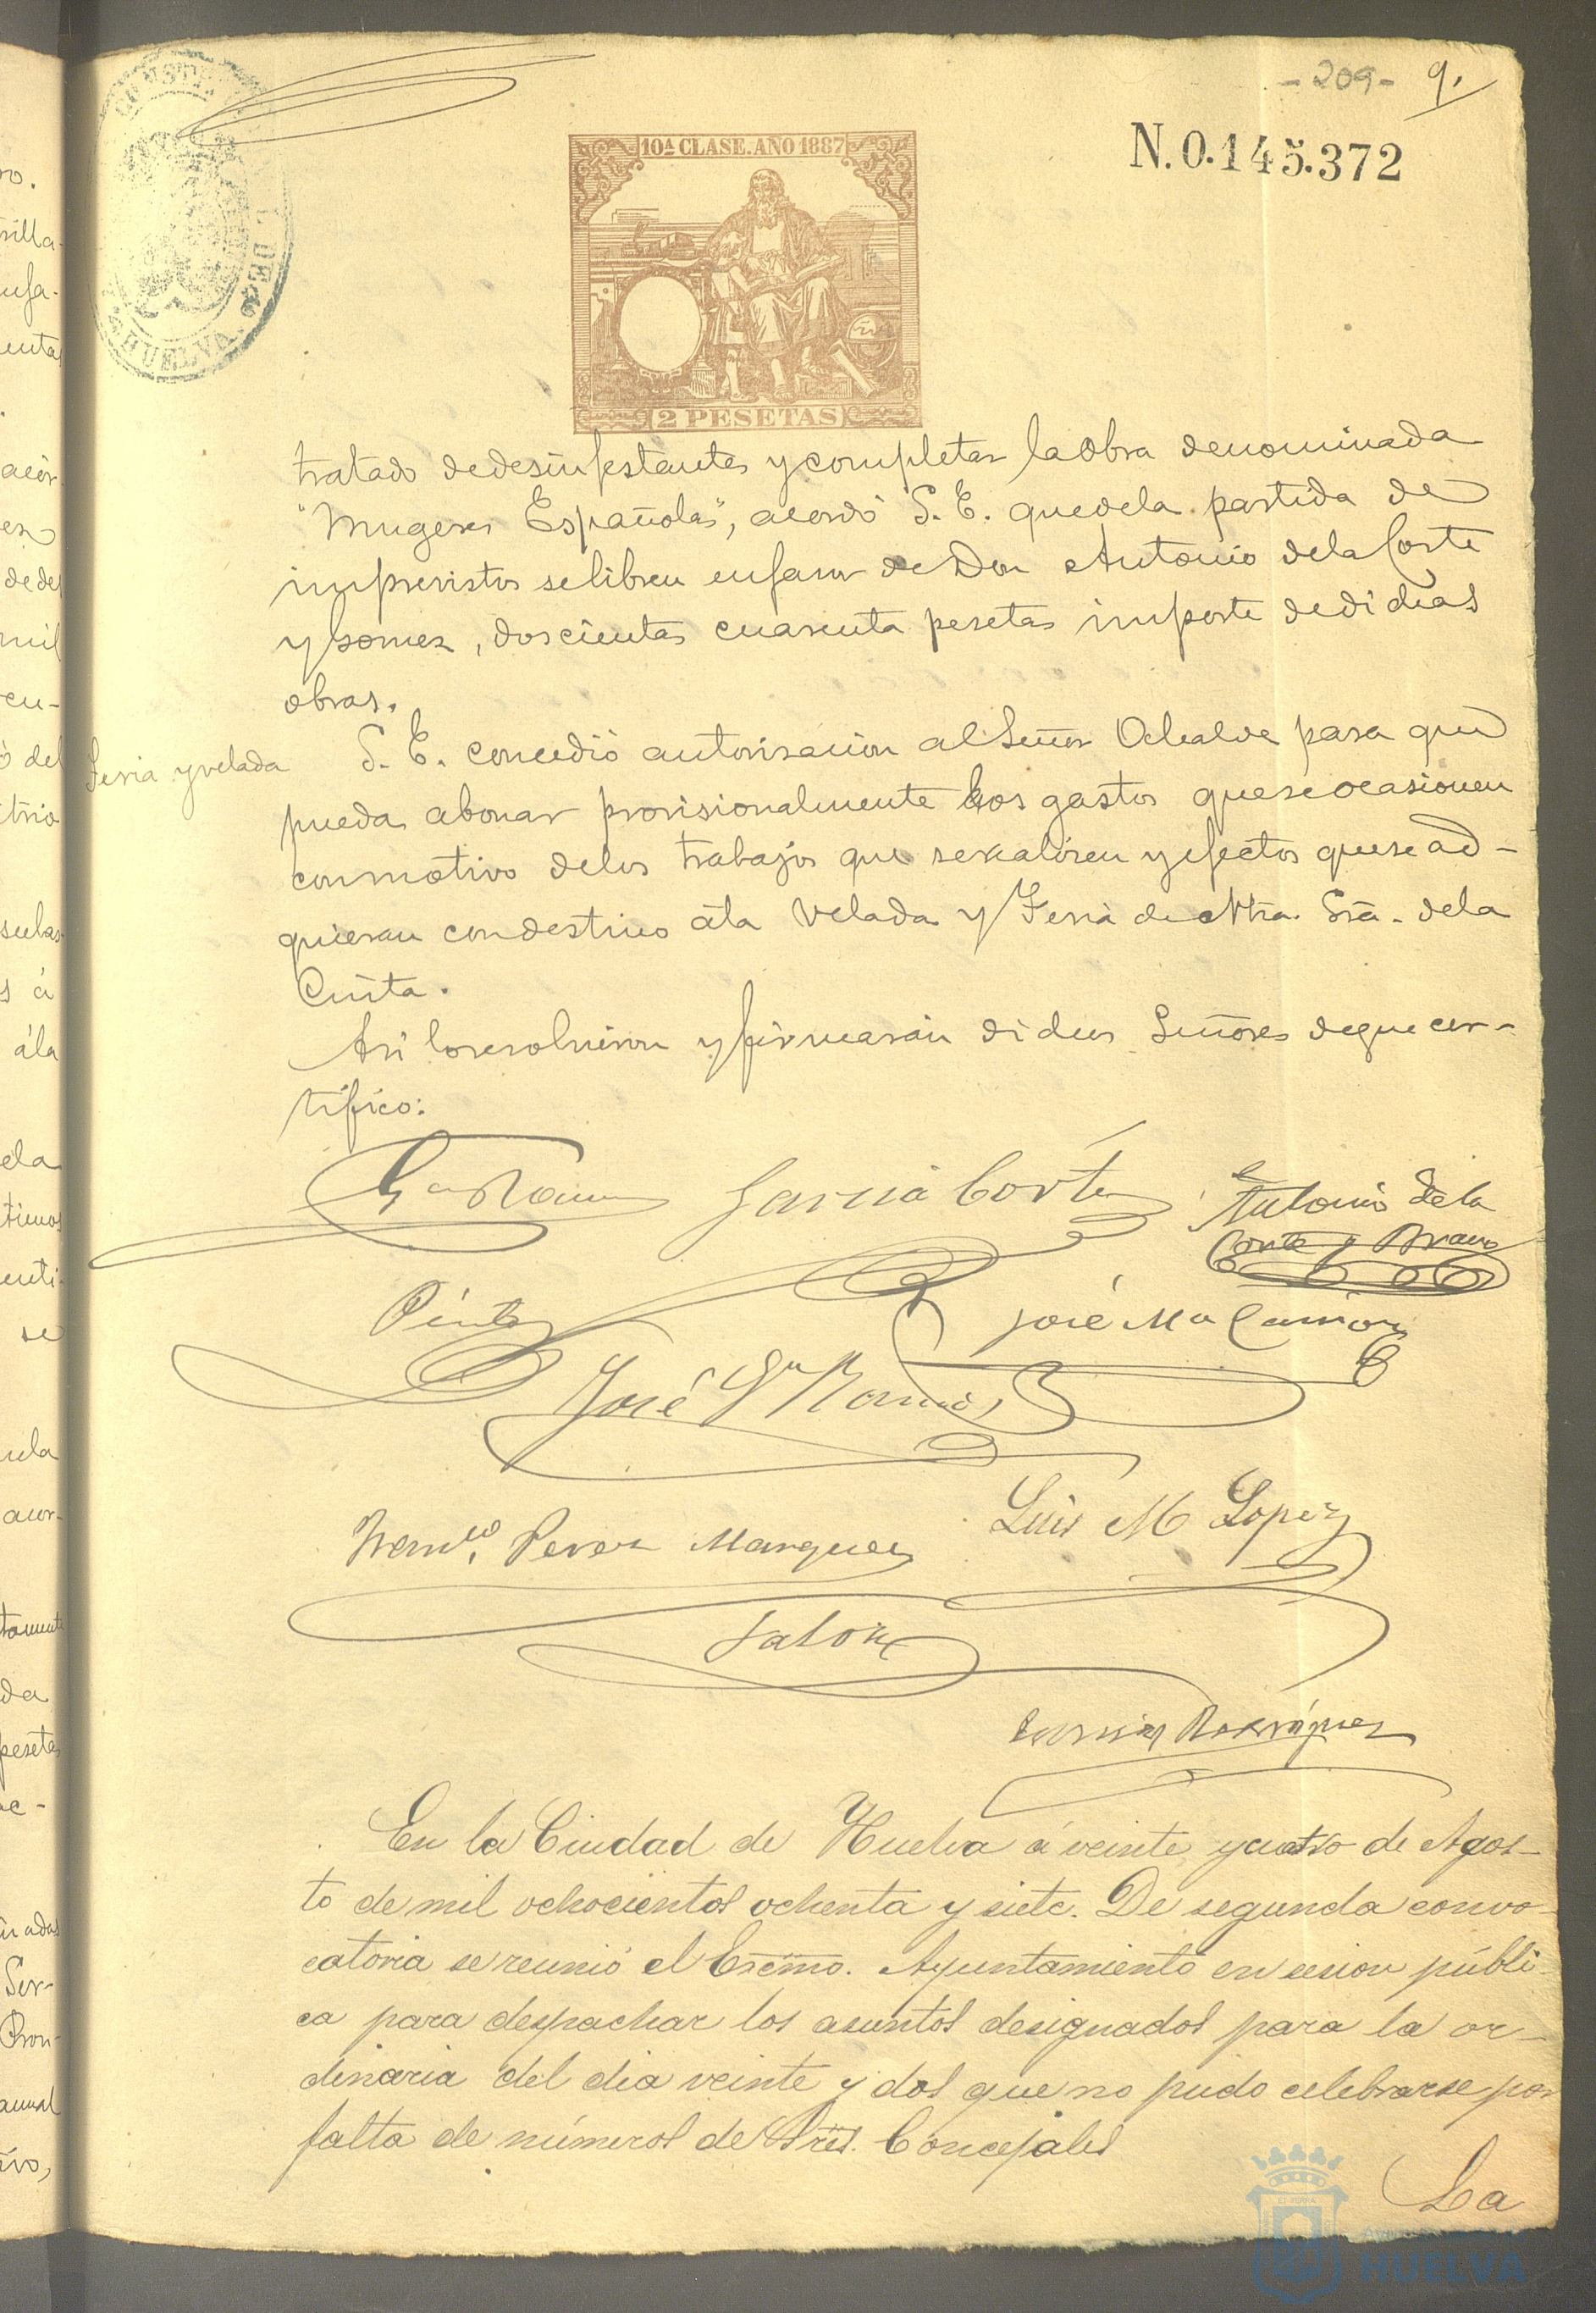 - 209 - 9.
N. 0.145.372
10A CLASE. AÑO 1887
2 PESETAS
HUELVA
tratado dedesinfestantes y completar laobra denominada
"Mugeres Españolas", acordó S. E. quedela partida de
imprevistos selibren enfavor de Don Antonio dela Corte
y Gomez, doscientas cuarenta pesetas importe dedichas
obras.
Feria y velada
S. E. concedió autorisacion al Señor Alcalde para que
pueda abonar provisionalmente los gastos queseocasionen
conmotivo delos trabajos que serealisen y efectos quese ad-
quieran condestino ála Velada y Feria de Ntra. Sra. dela
Cinta.
Asi loresolvieron y firmarán dichos Señores deque cer-
tifico:
Garcia Cortés
Antonio de la
Corte y Bravo
Pinto
José Ma
José Gª Ramos
Franco. Perez Marquez
Luis M Lopez
Rodriguez
En la Ciudad de Huelva á veinte y cuatro de Agos-
to de mil ochocientos ochenta y siete. De segunda convo-
catoria se reunió el Excmo. Ayuntamiento en sesion públi-
ca para despachar los asuntos designados para la or-
dinaria del dia veinte y dos que no pudo celebrarse por
falta de números de Sres. Concejales
La
HUELVA